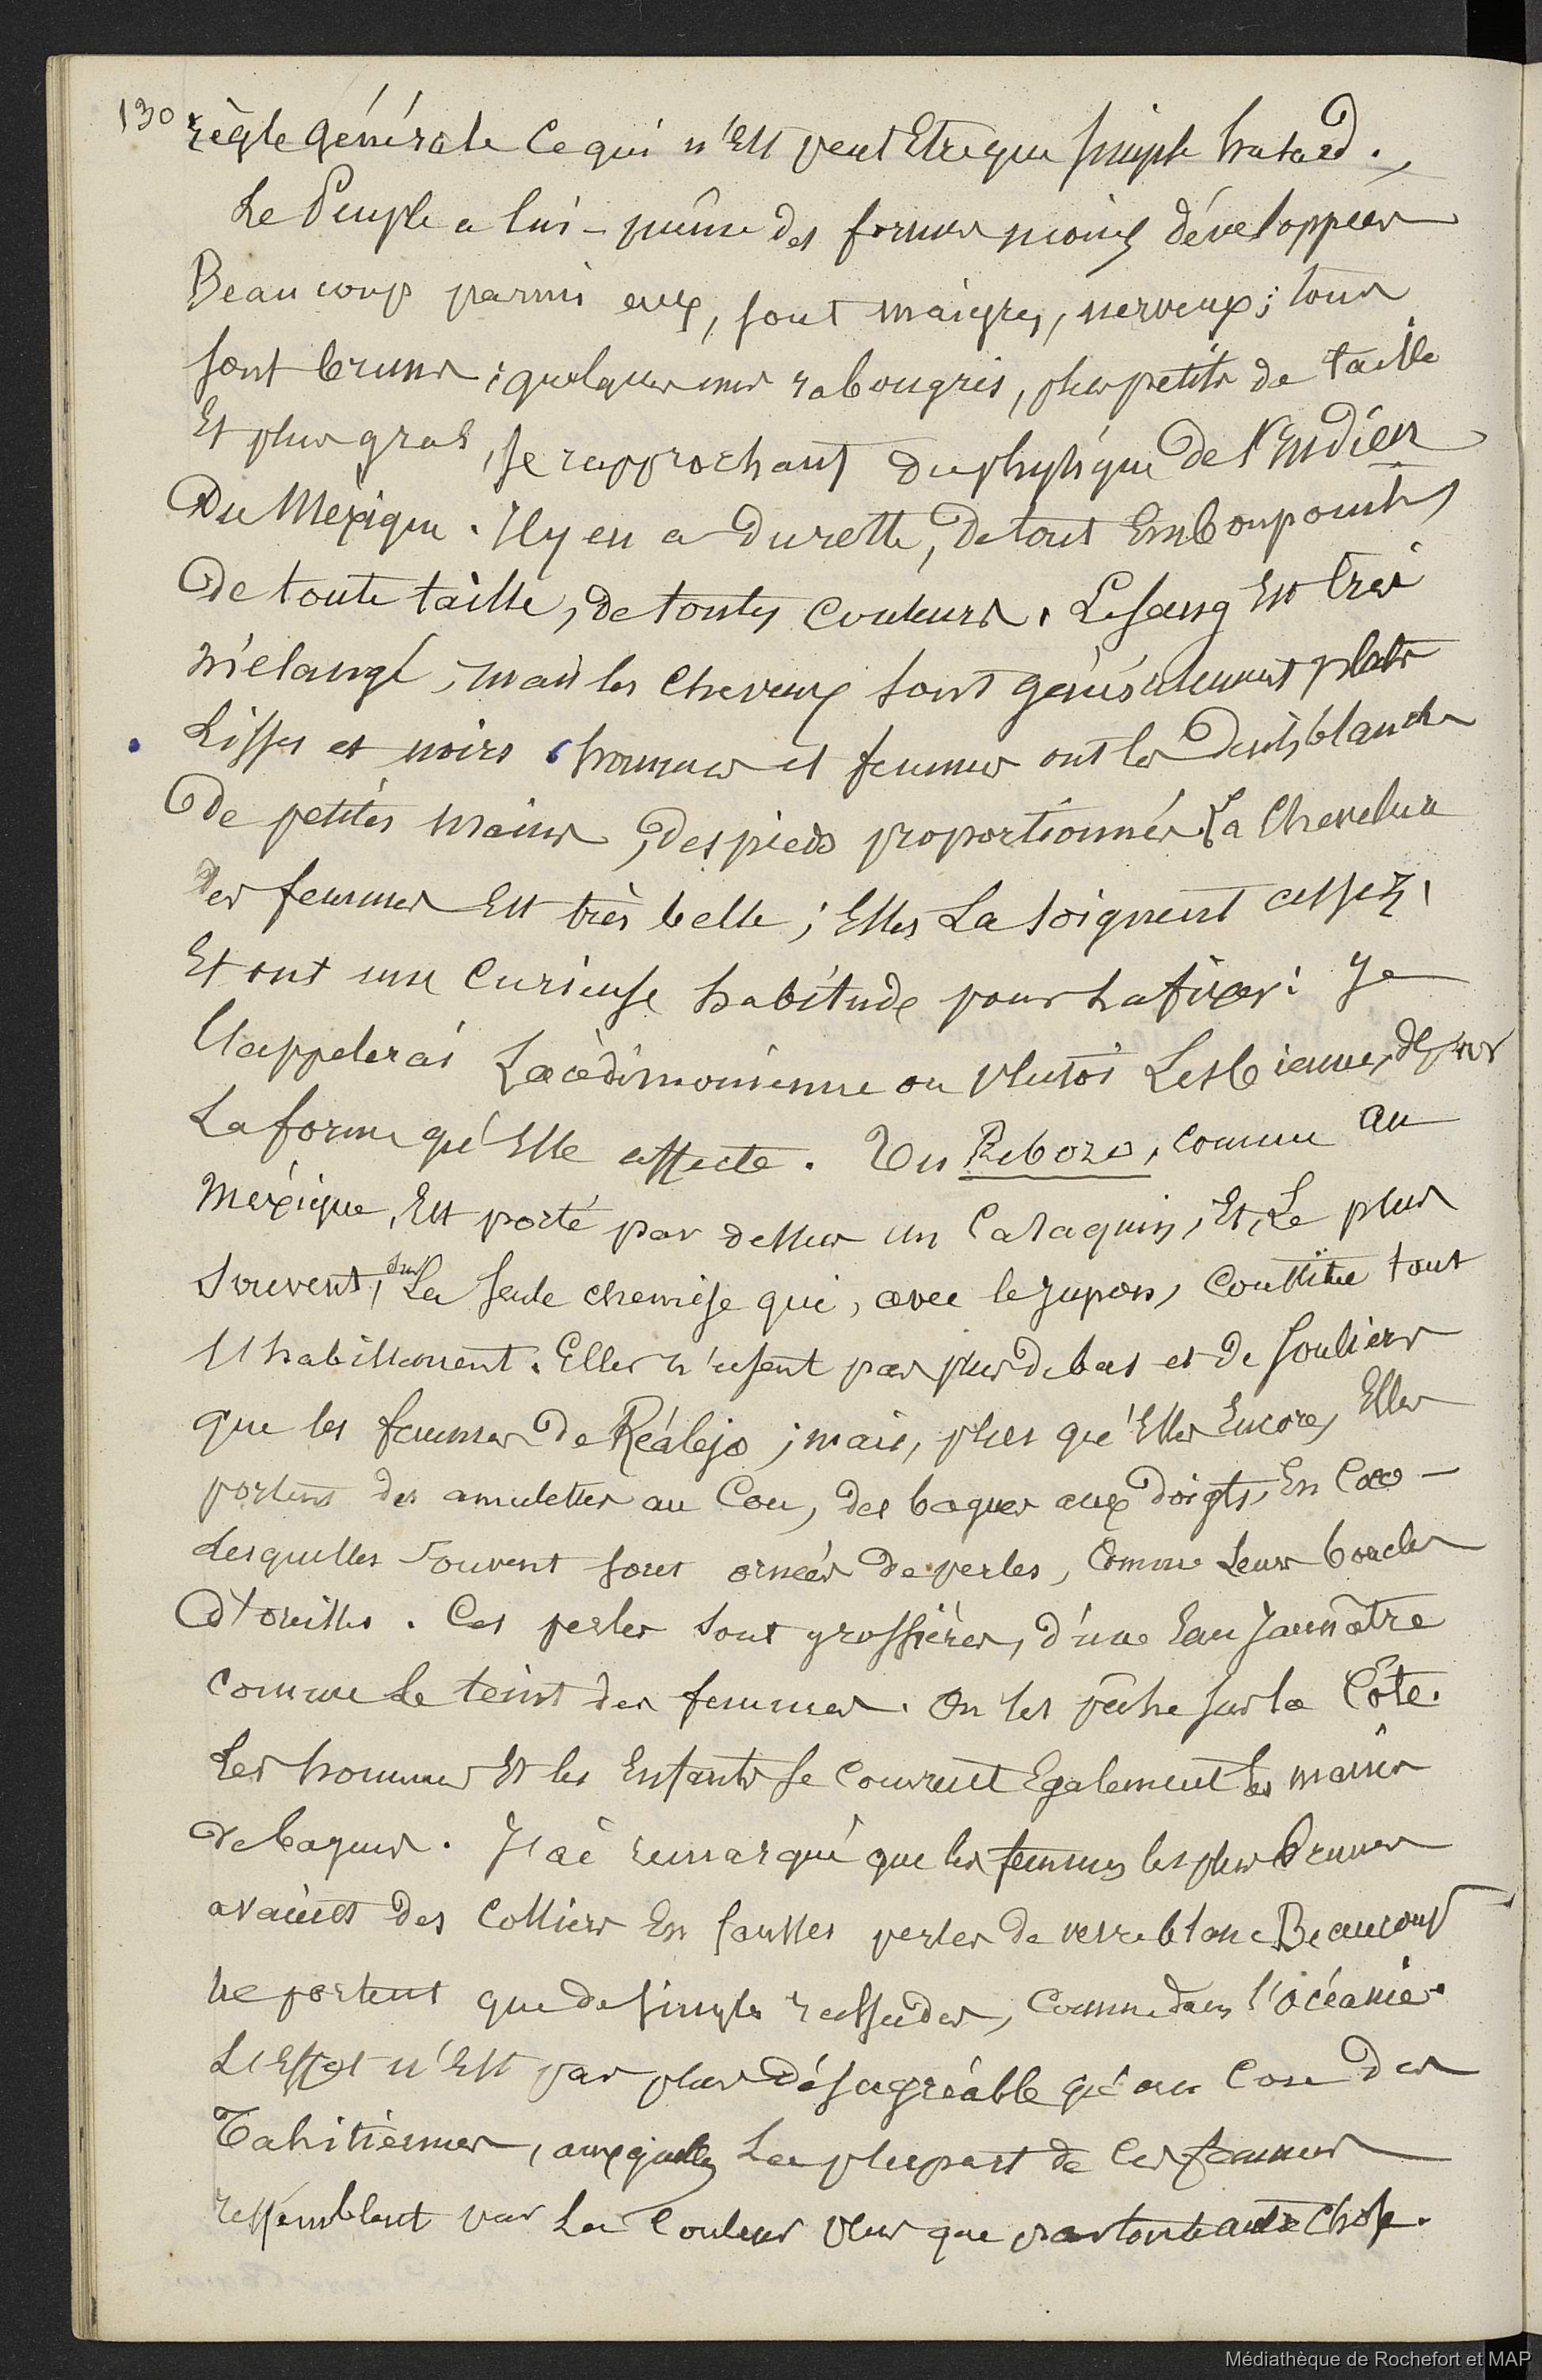 130
règle générale ce qui n'est peut être que simple hasard.
Le Peuple a lui-même des formes moins développées
Beaucoup parmi eux, sont maigres, nerveux ; tous
sont bruns ; quelques uns rabougris, plus petits de taille
Et plus gras, se rapprochant du physique de l'Indien
Du Mexique. Il y en a du reste, de tout Embonpoint,
De toute taille, de toutes Couleurs. Le sang Est très
mélangé, mais les cheveux sont généralement plats
Lisses et noirs. hommes et femmes ont les Dents blanches
De petites mains, des pieds proportionnés. La Chevelure
des femmes Est très belle ; Elles La soignent assez,
Et ont une Curieuse habitude pour La fixer : Je
l'appelerai Lacédémonienne ou plutôt Lesbienne,
La forme qu'Elle affecte. Un Rebozo, comme au
Méxique, Est porté par dessus un Caraquin, Et, Le plus
souvent, sur La seule chemise qui, avec le jupon, Constitue tout
l'habillement. Elles n'usent pas plus de bas et de souliers
que les femmes De Réalejo ; mais, plus qu'Elles Encore, Elles
portent des amulettes au Cou, des bagues aux doigts, En Coco –
Lesquelles souvent sont ornées De perles, Comme Leurs boucles
d'oreilles. Ces perles sont grossières, d'une Eau Jaunâtre
comme Le teint des femmes. On les pêche sur la Côte.
Les hommes Et les Enfants se Couvrent Egalement les mains
de bagues. J'ai remarqué que les femmes les plus brunes
avaient des Colliers En fausses perles de verre blanc Beaucoup
ne portent que de simples rassades, Comme dans l'océanie.
L'Effet n'Est pas plus Désagréable qu'au Cou Des
Tahitiennes, auxquelles La plupart de Ces femmes
ressemblent par La Couleur plus que par toute autre Chose.
Médiathèque de Rochefort et MAP